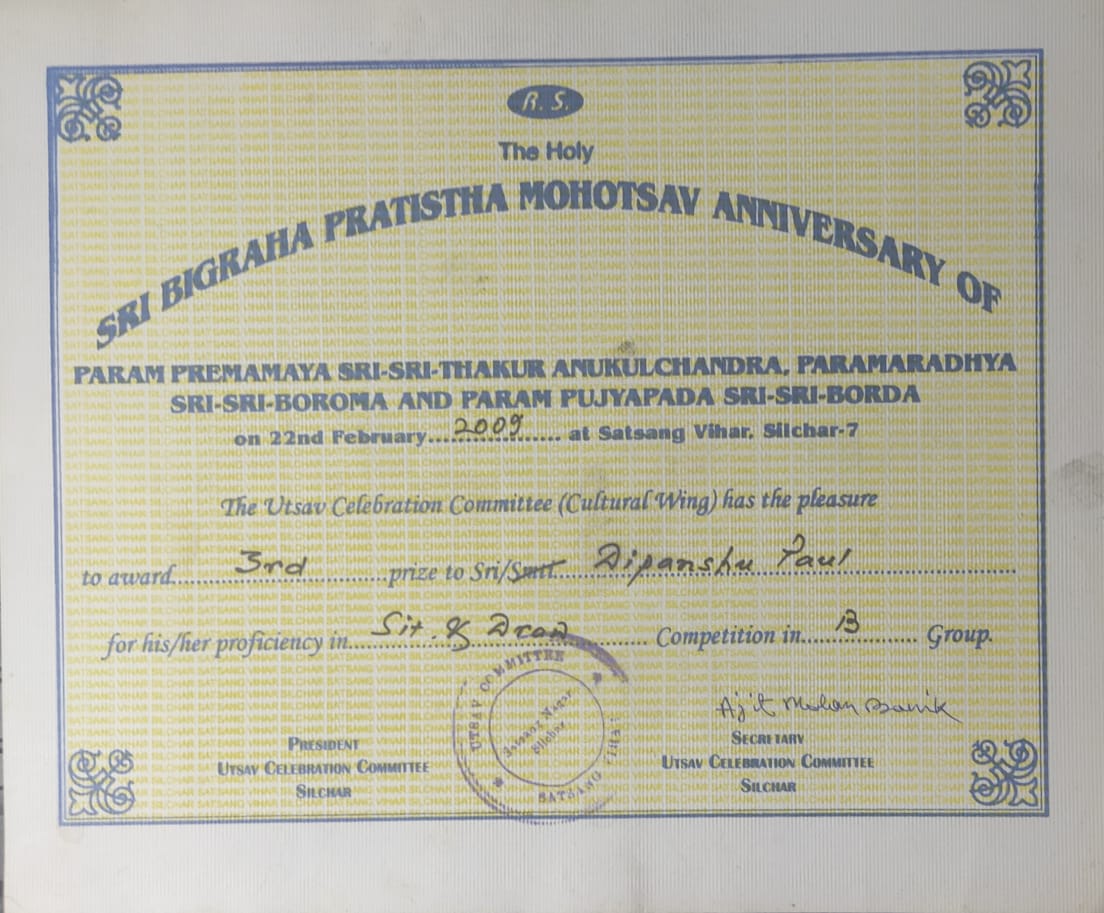 R. S.
The Holy
SRI BIGRAHA PRATISTHA MOHOTSAV ANNIVERSARY OF
PARAM PREMAMAYA SRI-SRI-THAKUR ANUKULCHANDRA, PARAMARADHYA
SRI-SRI-BOROMA AND PARAM PUJYAPADA SRI-SRI-BORDA
on 22nd February....2009.... at Satsang Vihar, Silchar-7
The Utsav Celebration Committee (Cultural Wing) has the pleasure
to award....3rd....prize to Sri/Smt.... Dipanshu Paul....
for his/her proficiency in....Sit & Draw.... Competition in....B.... Group.
UTSAV COMMITTEE
Silchar
SATSANG VIHAR
Ajit Mohan Banik
PRESIDENT
UTSAV CELEBRATION COMMITTEE
SILCHAR
SECRETARY
UTSAV CELEBRATION COMMITTEE
SILCHAR